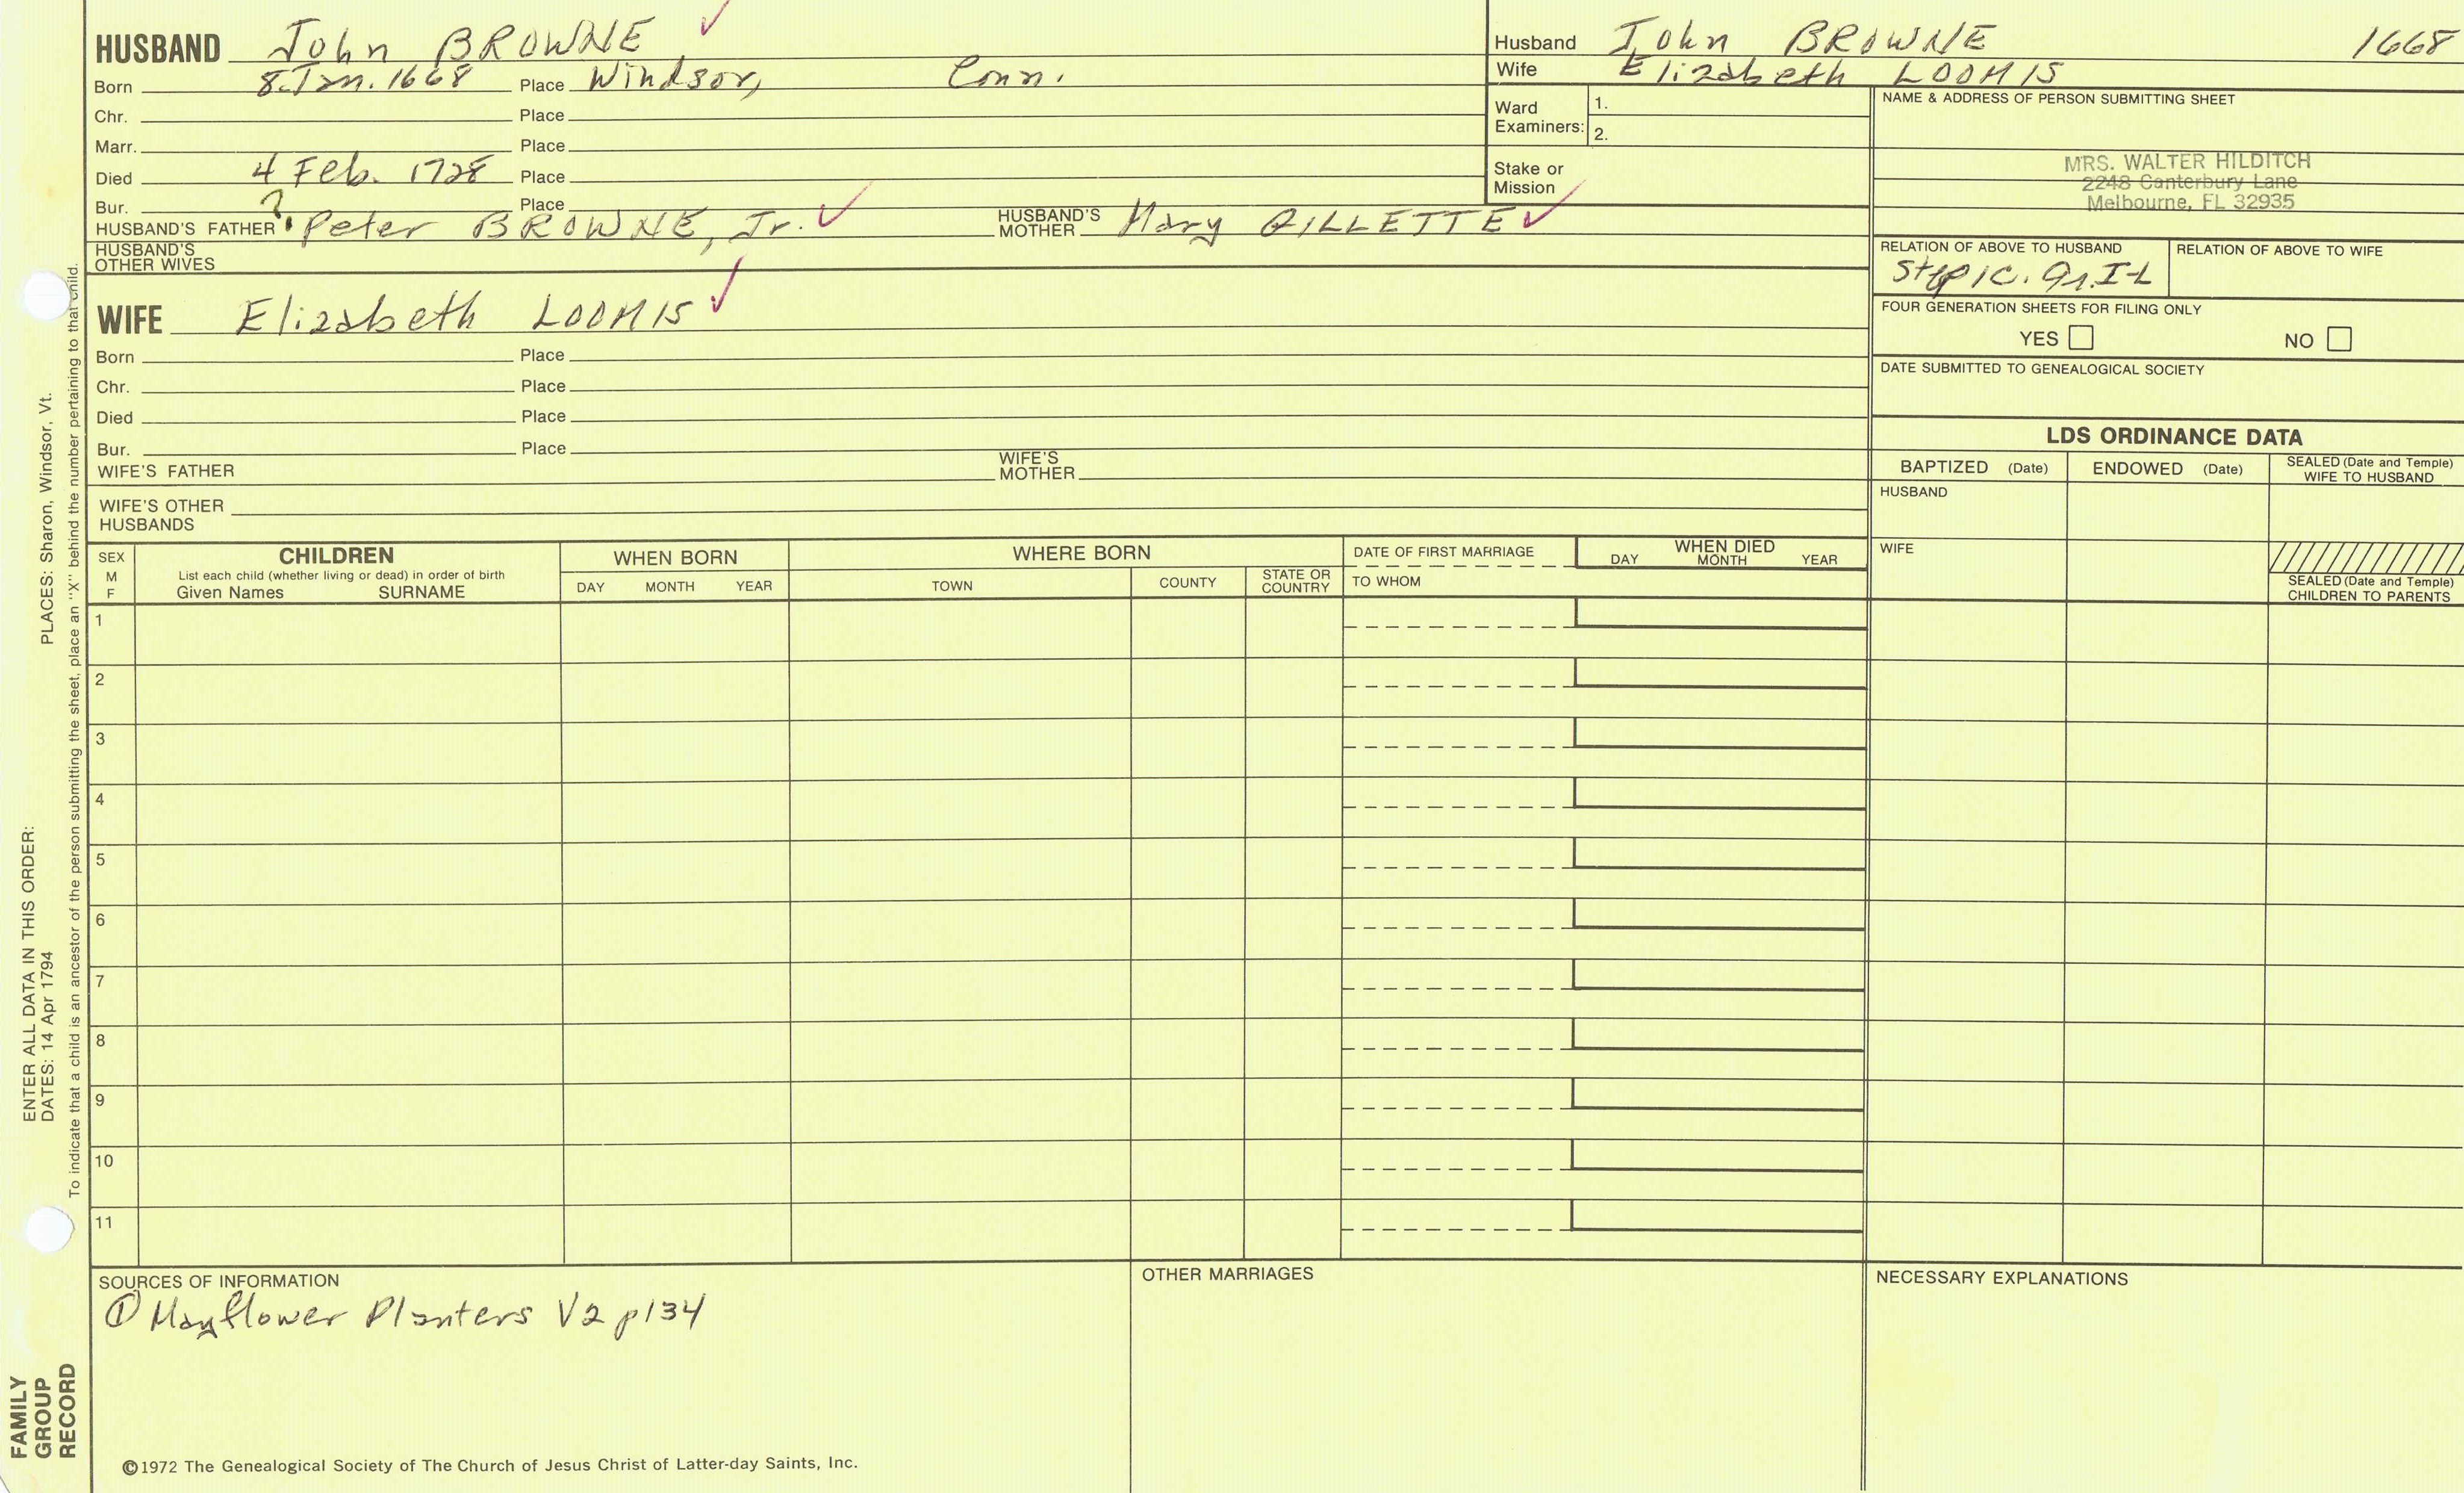 HUSBAND John BROWNE
Born 8 Jan. 1668 Place Windsor, Conn.
Chr. Place
Marr. Place
Died 4 Feb. 1728 Place
Bur. Place
HUSBAND'S FATHER ? Peter BROWNE, Jr. HUSBAND'S MOTHER Mary GILLETTE
HUSBAND'S OTHER WIVES
WIFE Elizabeth LOOMIS
Born Place
Chr. Place
Died Place
Bur. Place
WIFE'S FATHER WIFE'S MOTHER
WIFE'S OTHER HUSBANDS
Husband John BROWNE 1668
Wife Elizabeth LOOMIS
Ward Examiners: 1.
2.
Stake or Mission
NAME & ADDRESS OF PERSON SUBMITTING SHEET
MRS. WALTER HILDITCH
2248 Canterbury Lane
Melbourne, FL 32935
RELATION OF ABOVE TO HUSBAND RELATION OF ABOVE TO WIFE
FOUR GENERATION SHEETS FOR FILING ONLY
YES NO
DATE SUBMITTED TO GENEALOGICAL SOCIETY
LDS ORDINANCE DATA
BAPTIZED (Date) ENDOWED (Date) SEALED (Date and Temple) WIFE TO HUSBAND
HUSBAND
WIFE
SEALED (Date and Temple) CHILDREN TO PARENTS
SEX M F
CHILDREN
List each child (whether living or dead) in order of birth
Given Names SURNAME
WHEN BORN
DAY MONTH YEAR
WHERE BORN
TOWN COUNTY STATE OR COUNTRY
DATE OF FIRST MARRIAGE
TO WHOM
WHEN DIED
DAY MONTH YEAR
1
2
3
4
5
6
7
8
9
10
11
SOURCES OF INFORMATION
① Mayflower Planters V2 p134
OTHER MARRIAGES
NECESSARY EXPLANATIONS
©1972 The Genealogical Society of The Church of Jesus Christ of Latter-day Saints, Inc.
ENTER ALL DATA IN THIS ORDER:
DATES: 14 Apr 1794 PLACES: Sharon, Windsor, Vt.
To indicate that a child is an ancestor of the person submitting the sheet, place an "X" behind the number pertaining to that child.
FAMILY
GROUP
RECORD